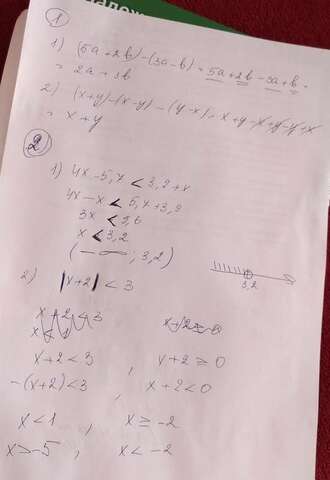 1
1) (5a+2b)-(3a-b)= 5a+2b-3a+b=
= 2a+3b
2) (x+y)-(x-y)-(y-x)= x+y-x+y-y+x
= x+y
2
1) 4x-5,7<3,9+x
4x-x<5,7+3,9
3x<9,6
x<3,2
(-∞; 3,2)
3,2
2) |x+2|<3
x+2<3
x<1
x+2≥0
x+2<3 , x+2≥0
-(x+2)<3 , x+2<0
x<1 , x≥-2
x>-5 , x<-2